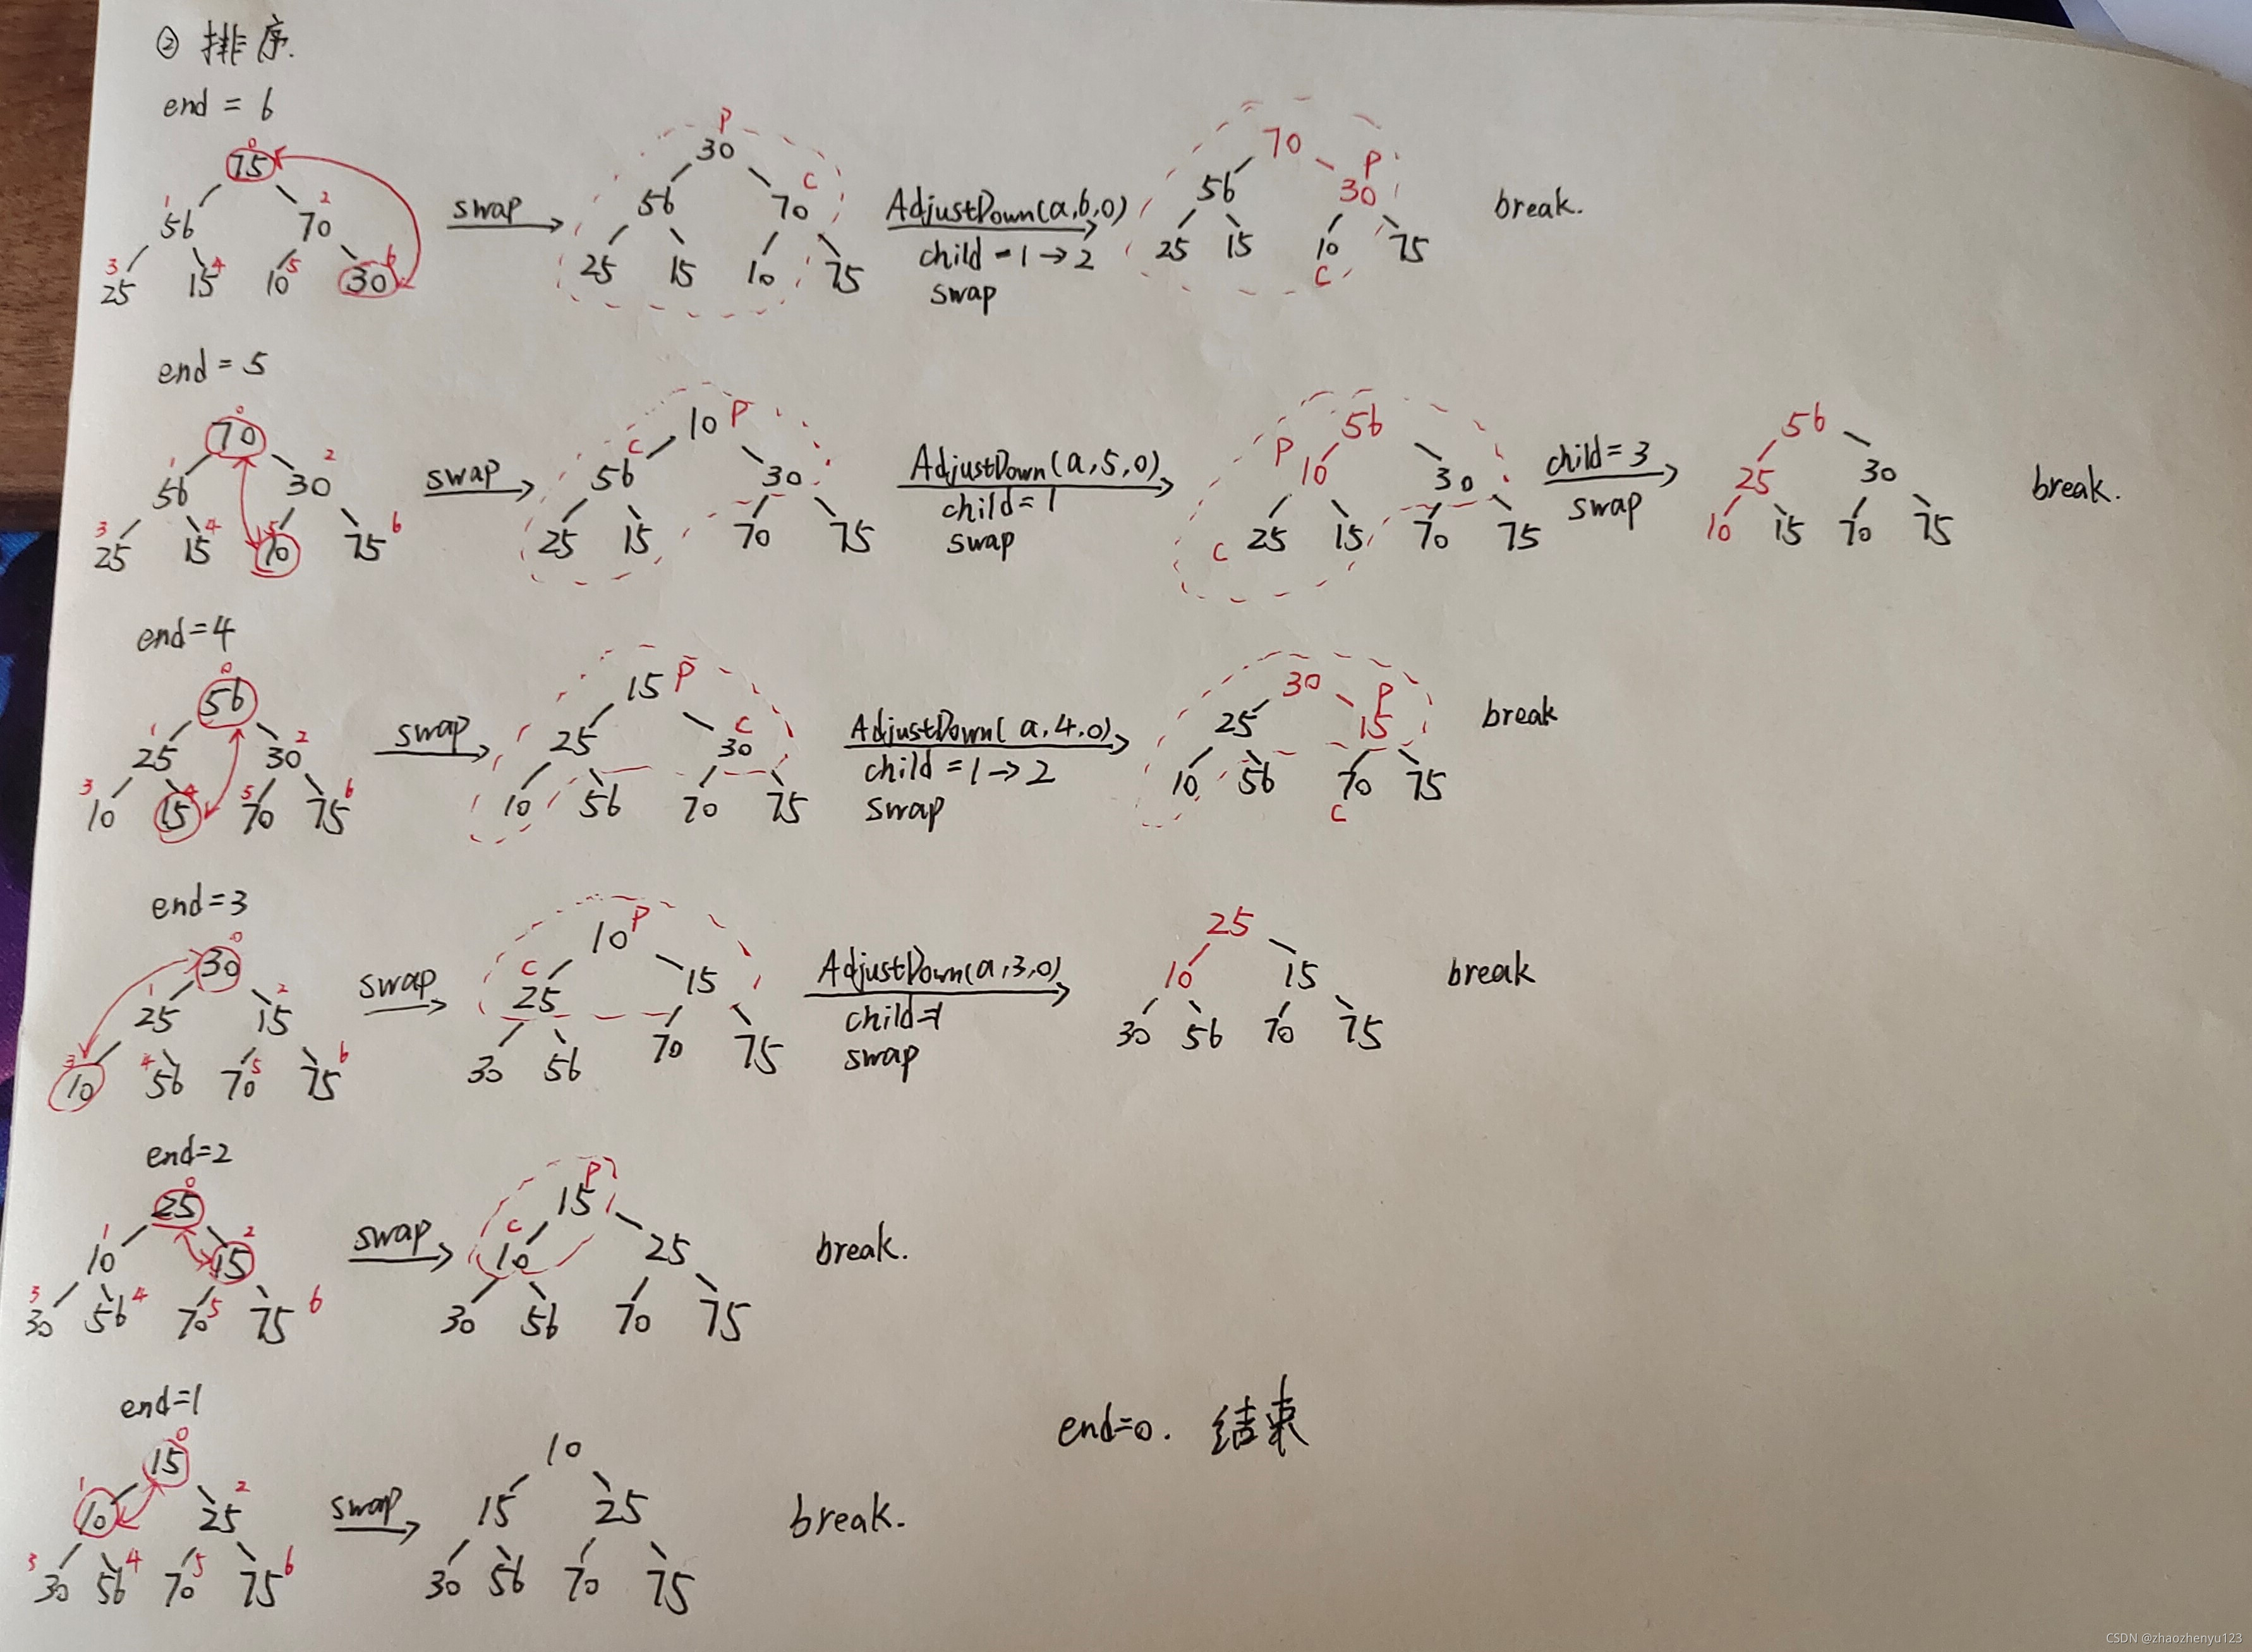 ② 排序.
end = 6
0
75
1 2
56 70
3 4 5 6
25 15 10 30
swap
P
30
C
56 70
25 15 10 75
AdjustDown(a,6,0)
child = 1 → 2
swap
70
P
56 30
25 15 10 75
C
break.
end = 5
0
70
1 2
56 30
3 4 5 6
25 15 10 75
swap
10 P
C
56 30
25 15 70 75
AdjustDown(a,5,0)
child = 1
swap
56
P
10 30
C 25 15 70 75
child = 3
swap
56
25 30
10 15 70 75
break.
end=4
0
56
1 2
25 30
3 4 5 6
10 15 70 75
swap
15 P
C
25 30
10 56 70 75
AdjustDown(a,4,0)
child = 1 → 2
swap
30
P
25 15
10 56 70 75
C
break
end=3
0
30
1 2
25 15
3 4 5 6
10 56 70 75
swap
10 P
C
25 15
30 56 70 75
AdjustDown(a,3,0)
child=1
swap
25
10 15
30 56 70 75
break
end=2
0
25
1 2
10 15
3 4 5 6
30 56 70 75
swap
P
15
C
10 25
30 56 70 75
break.
end=1
0
15
1 2
10 25
3 4 5 6
30 56 70 75
swap
10
15 25
30 56 70 75
break.
end=0. 结束
CSDN @zhaozhenyu123